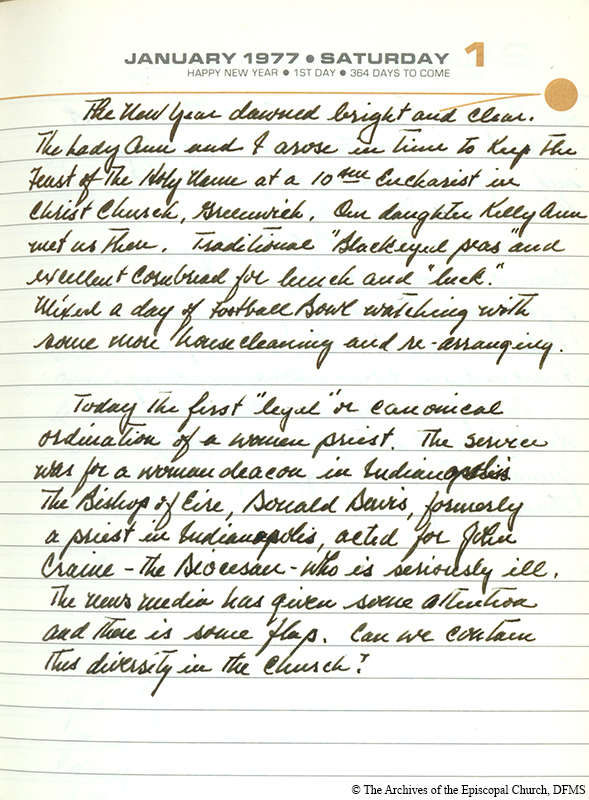 JANUARY 1977 • SATURDAY 1
HAPPY NEW YEAR • 1ST DAY • 364 DAYS TO COME
The New Year dawned bright and clear.
The Lady Ann and I arose in time to keep the
Feast of The Holy Name at a 10 am Eucharist in
Christ Church, Greenwich. Our daughter Kelly Ann
met us there. Traditional "Blackeyed peas" and
excellent Cornbread for lunch and "luck."
Mixed a day of Football Bowl watching with
some more housecleaning and re-arranging.
Today the first "legal" or canonical
ordination of a women priest. The service
was for a woman deacon in Indianapolis
The Bishop of Eire, Donald Davis, formerly
a priest in Indianapolis, acted for John
Craine - the Diocesan - who is seriously ill.
The news media has given some attention
and there is some flap. Can we contain
this diversity in the church?
© The Archives of the Episcopal Church, DFMS